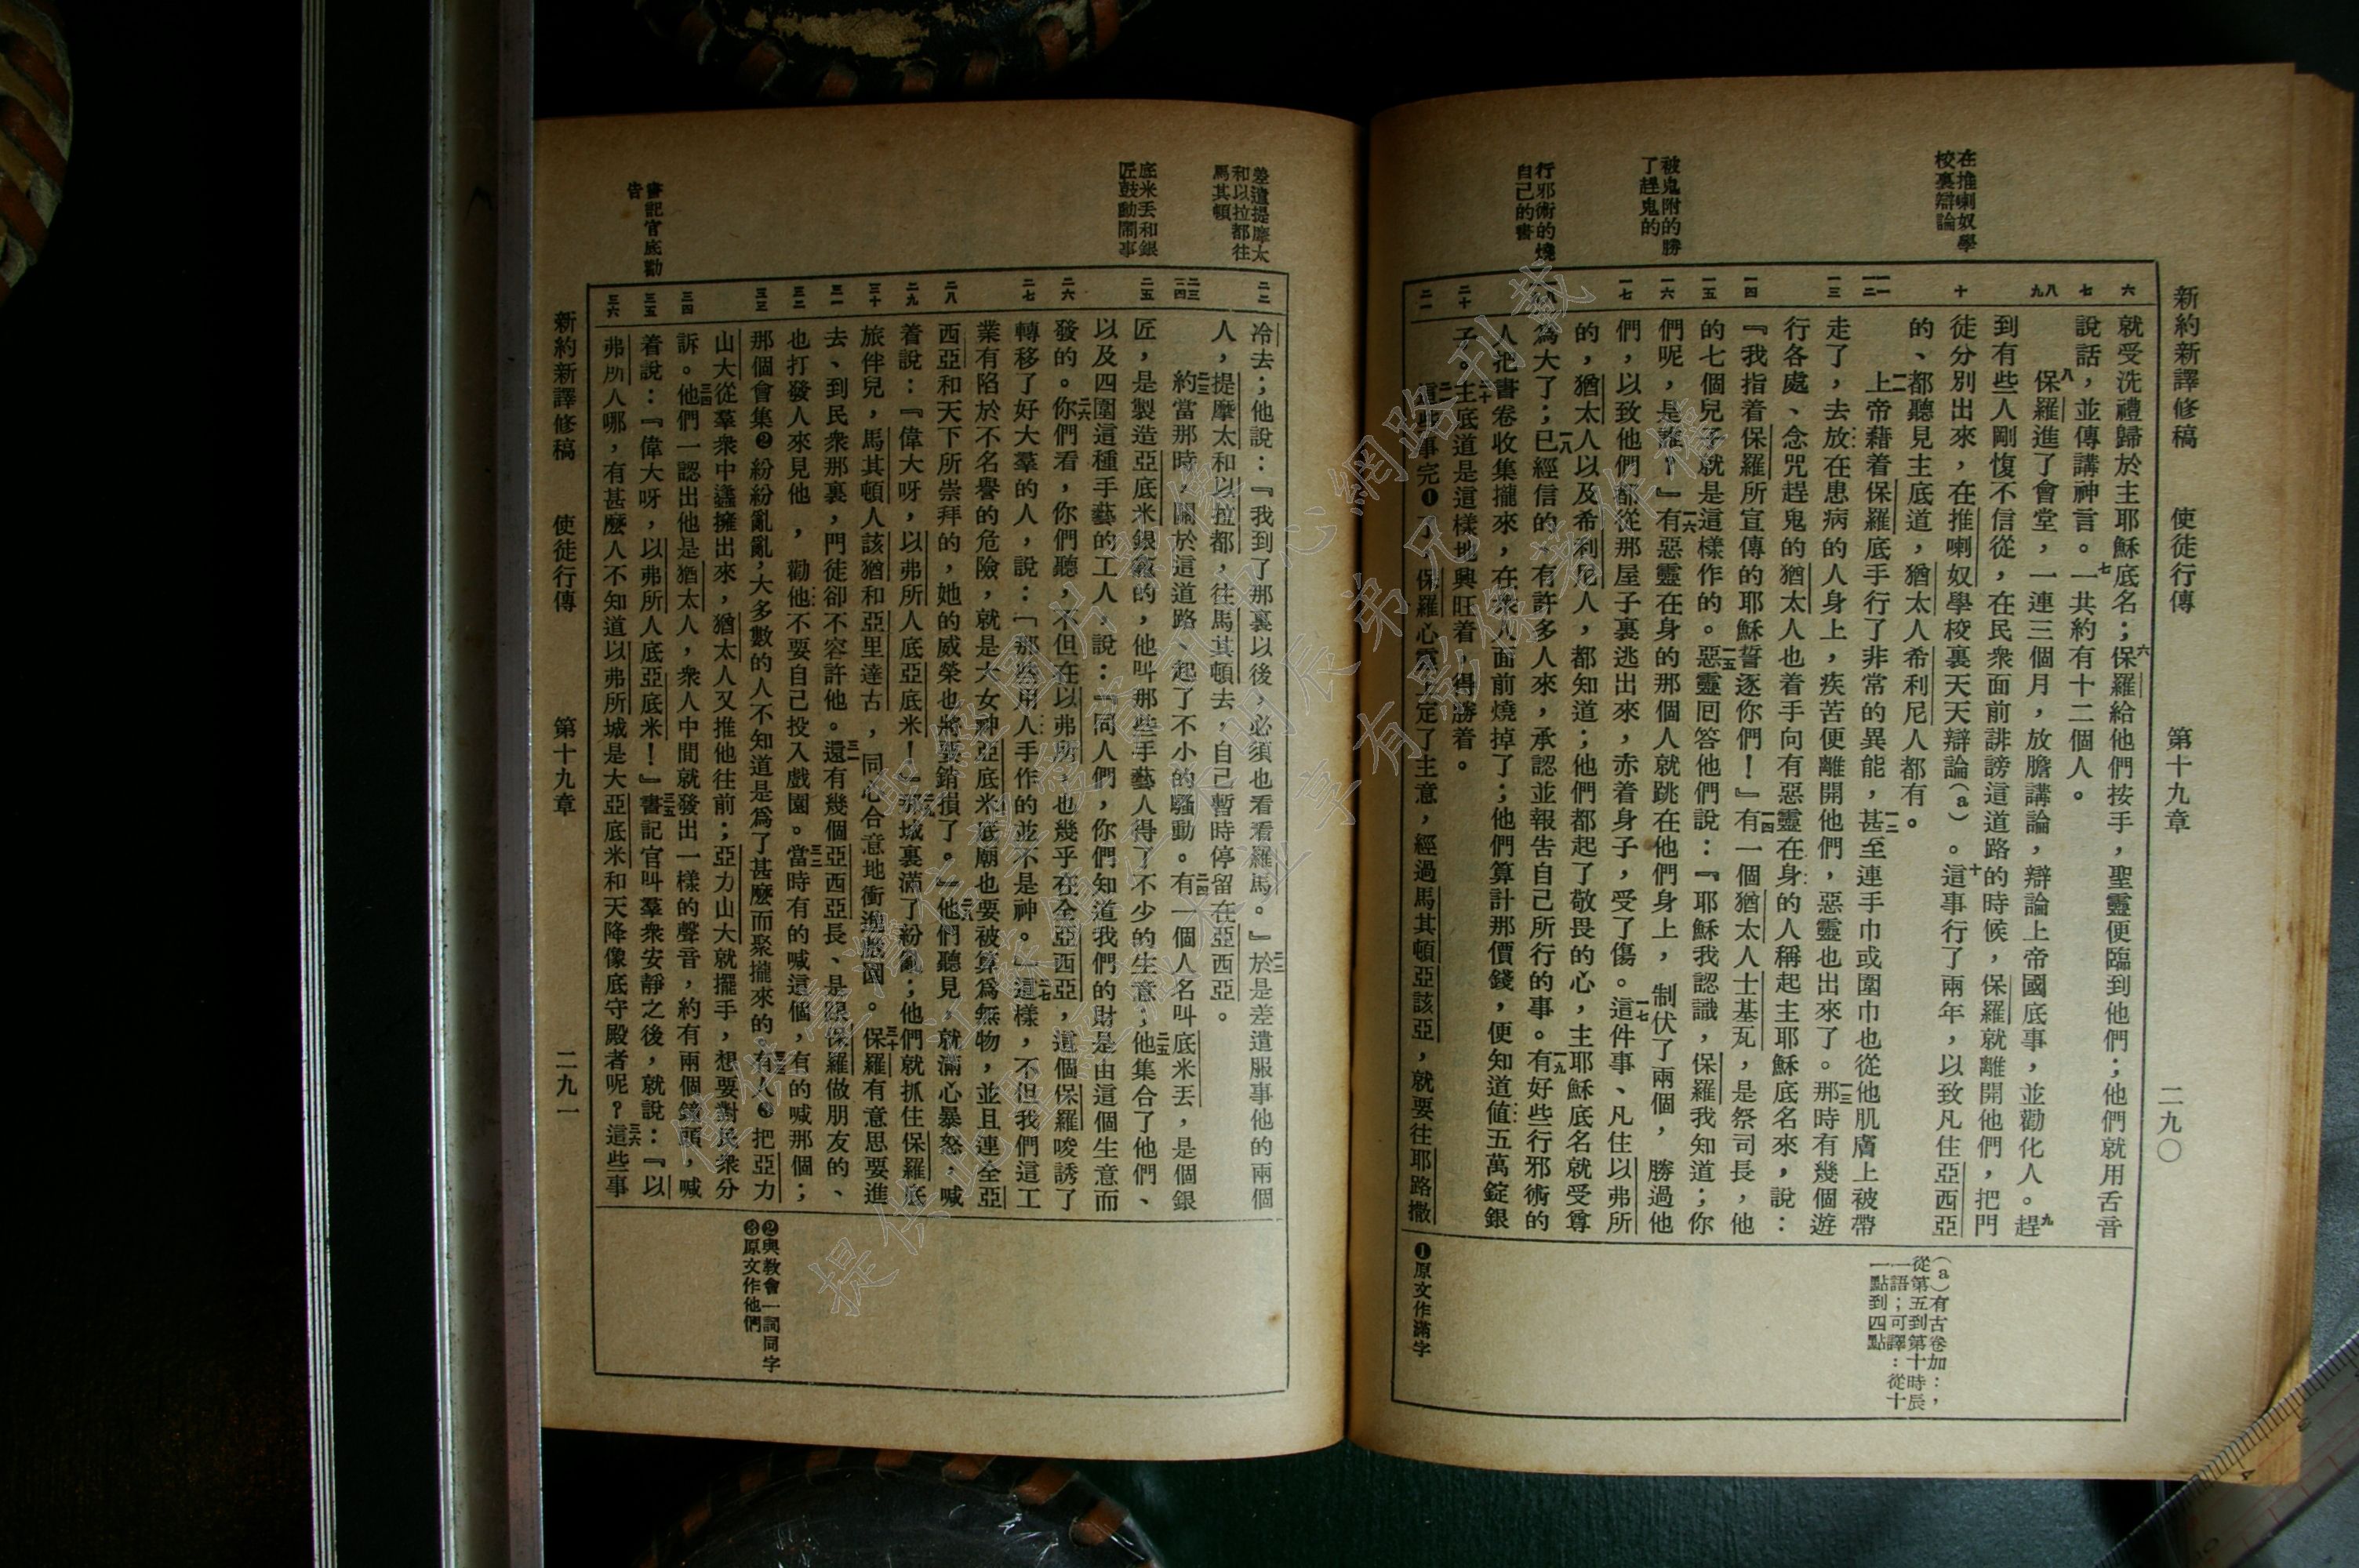 新約新譯修稿　使徒行傳　第十九章　二九〇
在推喇奴學
校裏辯論
被鬼附的勝
了趕鬼的
行邪術的燒
自己的書
六
七
八
九
十
一一
一二
一三
一四
一五
一六
一七
一八
二十
二一
就受洗禮歸於主耶穌底名；六保羅給他們按手，聖靈便臨到他們；他們就用舌音
說話，並傳講神言。七一共約有十二個人。
八保羅進了會堂，一連三個月，放膽講論，辯論上帝國底事，並勸化人。九趕
到有些人剛愎不信從，在民衆面前誹謗這道路的時候，保羅就離開他們，把門
徒分別出來，在推喇奴學校裏天天辯論（a）。十這事行了兩年，以致凡住亞西亞
的、都聽見主底道，猶太人希利尼人都有。
一一上帝藉着保羅底手行了非常的異能，一二甚至連手巾或圍巾也從他肌膚上被帶
走了，去放在患病的人身上，疾苦便離開他們，惡靈也出來了。一三那時有幾個遊
行各處、念咒趕鬼的猶太人也着手向有惡靈在身的人稱起主耶穌底名來，說：
『我指着保羅所宣傳的耶穌誓逐你們！』一四有一個猶太人士基瓦，是祭司長，他
的七個兒子就是這樣作的。一五惡靈囘答他們說：『耶穌我認識，保羅我知道；你
們呢，是誰？』一六有惡靈在身的那個人就跳在他們身上，制伏了兩個，勝過他
們，以致他們都從那屋子裏逃出來，赤着身子，受了傷。一七這件事、凡住以弗所
的，猶太人以及希利尼人，都知道；他們都起了敬畏的心，主耶穌底名就受尊
為大了；一八已經信的、有許多人來，承認並報告自己所行的事。一九有好些行邪術的
人把書卷收集攏來，在衆人面前燒掉了；他們算計那價錢，便知道值五萬錠銀
子。二十主底道是這樣地興旺着，得勝着。
二一這些事完❶了，保羅心靈上定了主意，經過馬其頓亞該亞，就要往耶路撒
（a）有古卷加：，
從第五到第十時辰
一語；可譯：從十
一點到四點
❶原文作滿字
差遣提摩太
和以拉都往
馬其頓
底米丟和銀
匠鼓動鬧事
書記官底勸
告
二二
二三
二四
二五
二六
二七
二八
二九
三十
三一
三二
三三
三四
三五
三六
冷去；他說：『我到了那裏以後，必須也看看羅馬。』二二於是差遣服事他的兩個
人，提摩太和以拉都，往馬其頓去，自己暫時停留在亞西亞。
二三約當那時，關於這道路、起了不小的騷動。二四有一個人名叫底米丟，是個銀
匠，是製造亞底米銀龕的，他叫那些手藝人得了不少的生意；二五他集合了他們、
以及四圍這種手藝的工人，說：『同人們，你們知道我們的財是由這個生意而
發的。二六你們看，你們聽，不但在以弗所，也幾乎在全亞西亞，這個保羅唆誘了
轉移了好大羣的人，說：「那些用人手作的並不是神。」二七這樣，不但我們這工
業有陷於不名譽的危險，就是大女神亞底米底廟也要被算爲無物，並且連全亞
西亞和天下所崇拜的，她的威榮也將要銷損了。』二八他們聽見，就滿心暴怒，喊
着說：『偉大呀，以弗所人底亞底米！』二九那城裏滿了紛亂；他們就抓住保羅底
旅伴兒，馬其頓人該猶和亞里達古，同心合意地衝進戲園。三十保羅有意思要進
去、到民衆那裏，門徒卻不容許他。三一還有幾個亞西亞長、是跟保羅做朋友的、
也打發人來見他，勸他不要自己投入戲園。三二當時有的喊這個，有的喊那個；
那個會集❷紛紛亂亂，大多數的人不知道是爲了甚麼而聚攏來的。三三有人❸把亞力
山大從羣衆中邊擁出來，猶太人又推他往前；亞力山大就擺手，想要對民衆分
訴。三四他們一認出他是猶太人，衆人中間就發出一樣的聲音，約有兩個鐘頭，喊
着說：『偉大呀，以弗所人底亞底米！』三五書記官叫羣衆安靜之後，就說：『以
弗所人哪，有甚麼人不知道以弗所城是大亞底米和天降像底守殿者呢？三六這些事
❷與教會一詞同字
❸原文作他們
新約新譯修稿　使徒行傳　第十九章　二九一